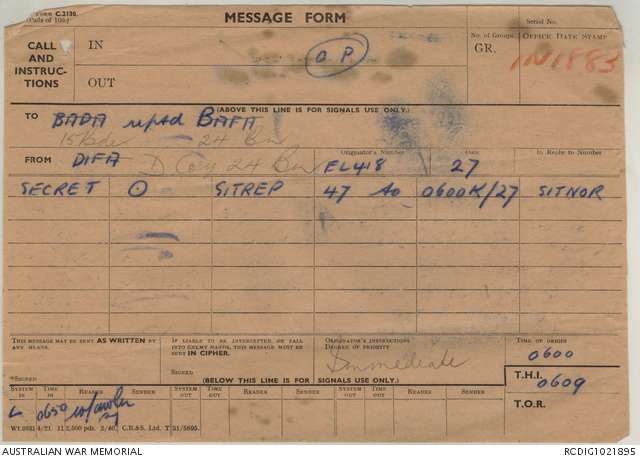 Form C.2136.
(Pads of 100)
MESSAGE FORM
Serial No.
CALL AND INSTRUC- TIONS
IN
OUT
O.P.
No. of Groups.
GR.
OFFICE DATE STAMP
IN1883
(ABOVE THIS LINE IS FOR SIGNALS USE ONLY.)
TO BADA reptd BAFA
15 Bde 24 Bn
Originator's Number Date In Reply to Number
FROM DIFA D Coy 24 Bn EL418 27
SECRET O SITREP 47 Ao 0600K/27 SITNOR
THIS MESSAGE MAY BE SENT AS WRITTEN BY ANY MEANS.
IF LIABLE TO BE INTERCEPTED OR FALL INTO ENEMY HANDS, THIS MESSAGE MUST BE SENT IN CIPHER.
ORIGINATOR'S INSTRUCTIONS DEGREE OF PRIORITY
Immediate
TIME OF ORIGIN
0600
T.H.I.
0609
T.O.R.
*SIGNED
SIGNED
(BELOW THIS LINE IS FOR SIGNALS USE ONLY.)
SYSTEM IN TIME IN READER SENDER SYSTEM OUT TIME OUT READER SENDER SYSTEM OUT TIME OUT READER SENDER
L 0650
27
C.B.&S. Ltd.
AUSTRALIAN WAR MEMORIAL
RCDIG1021895